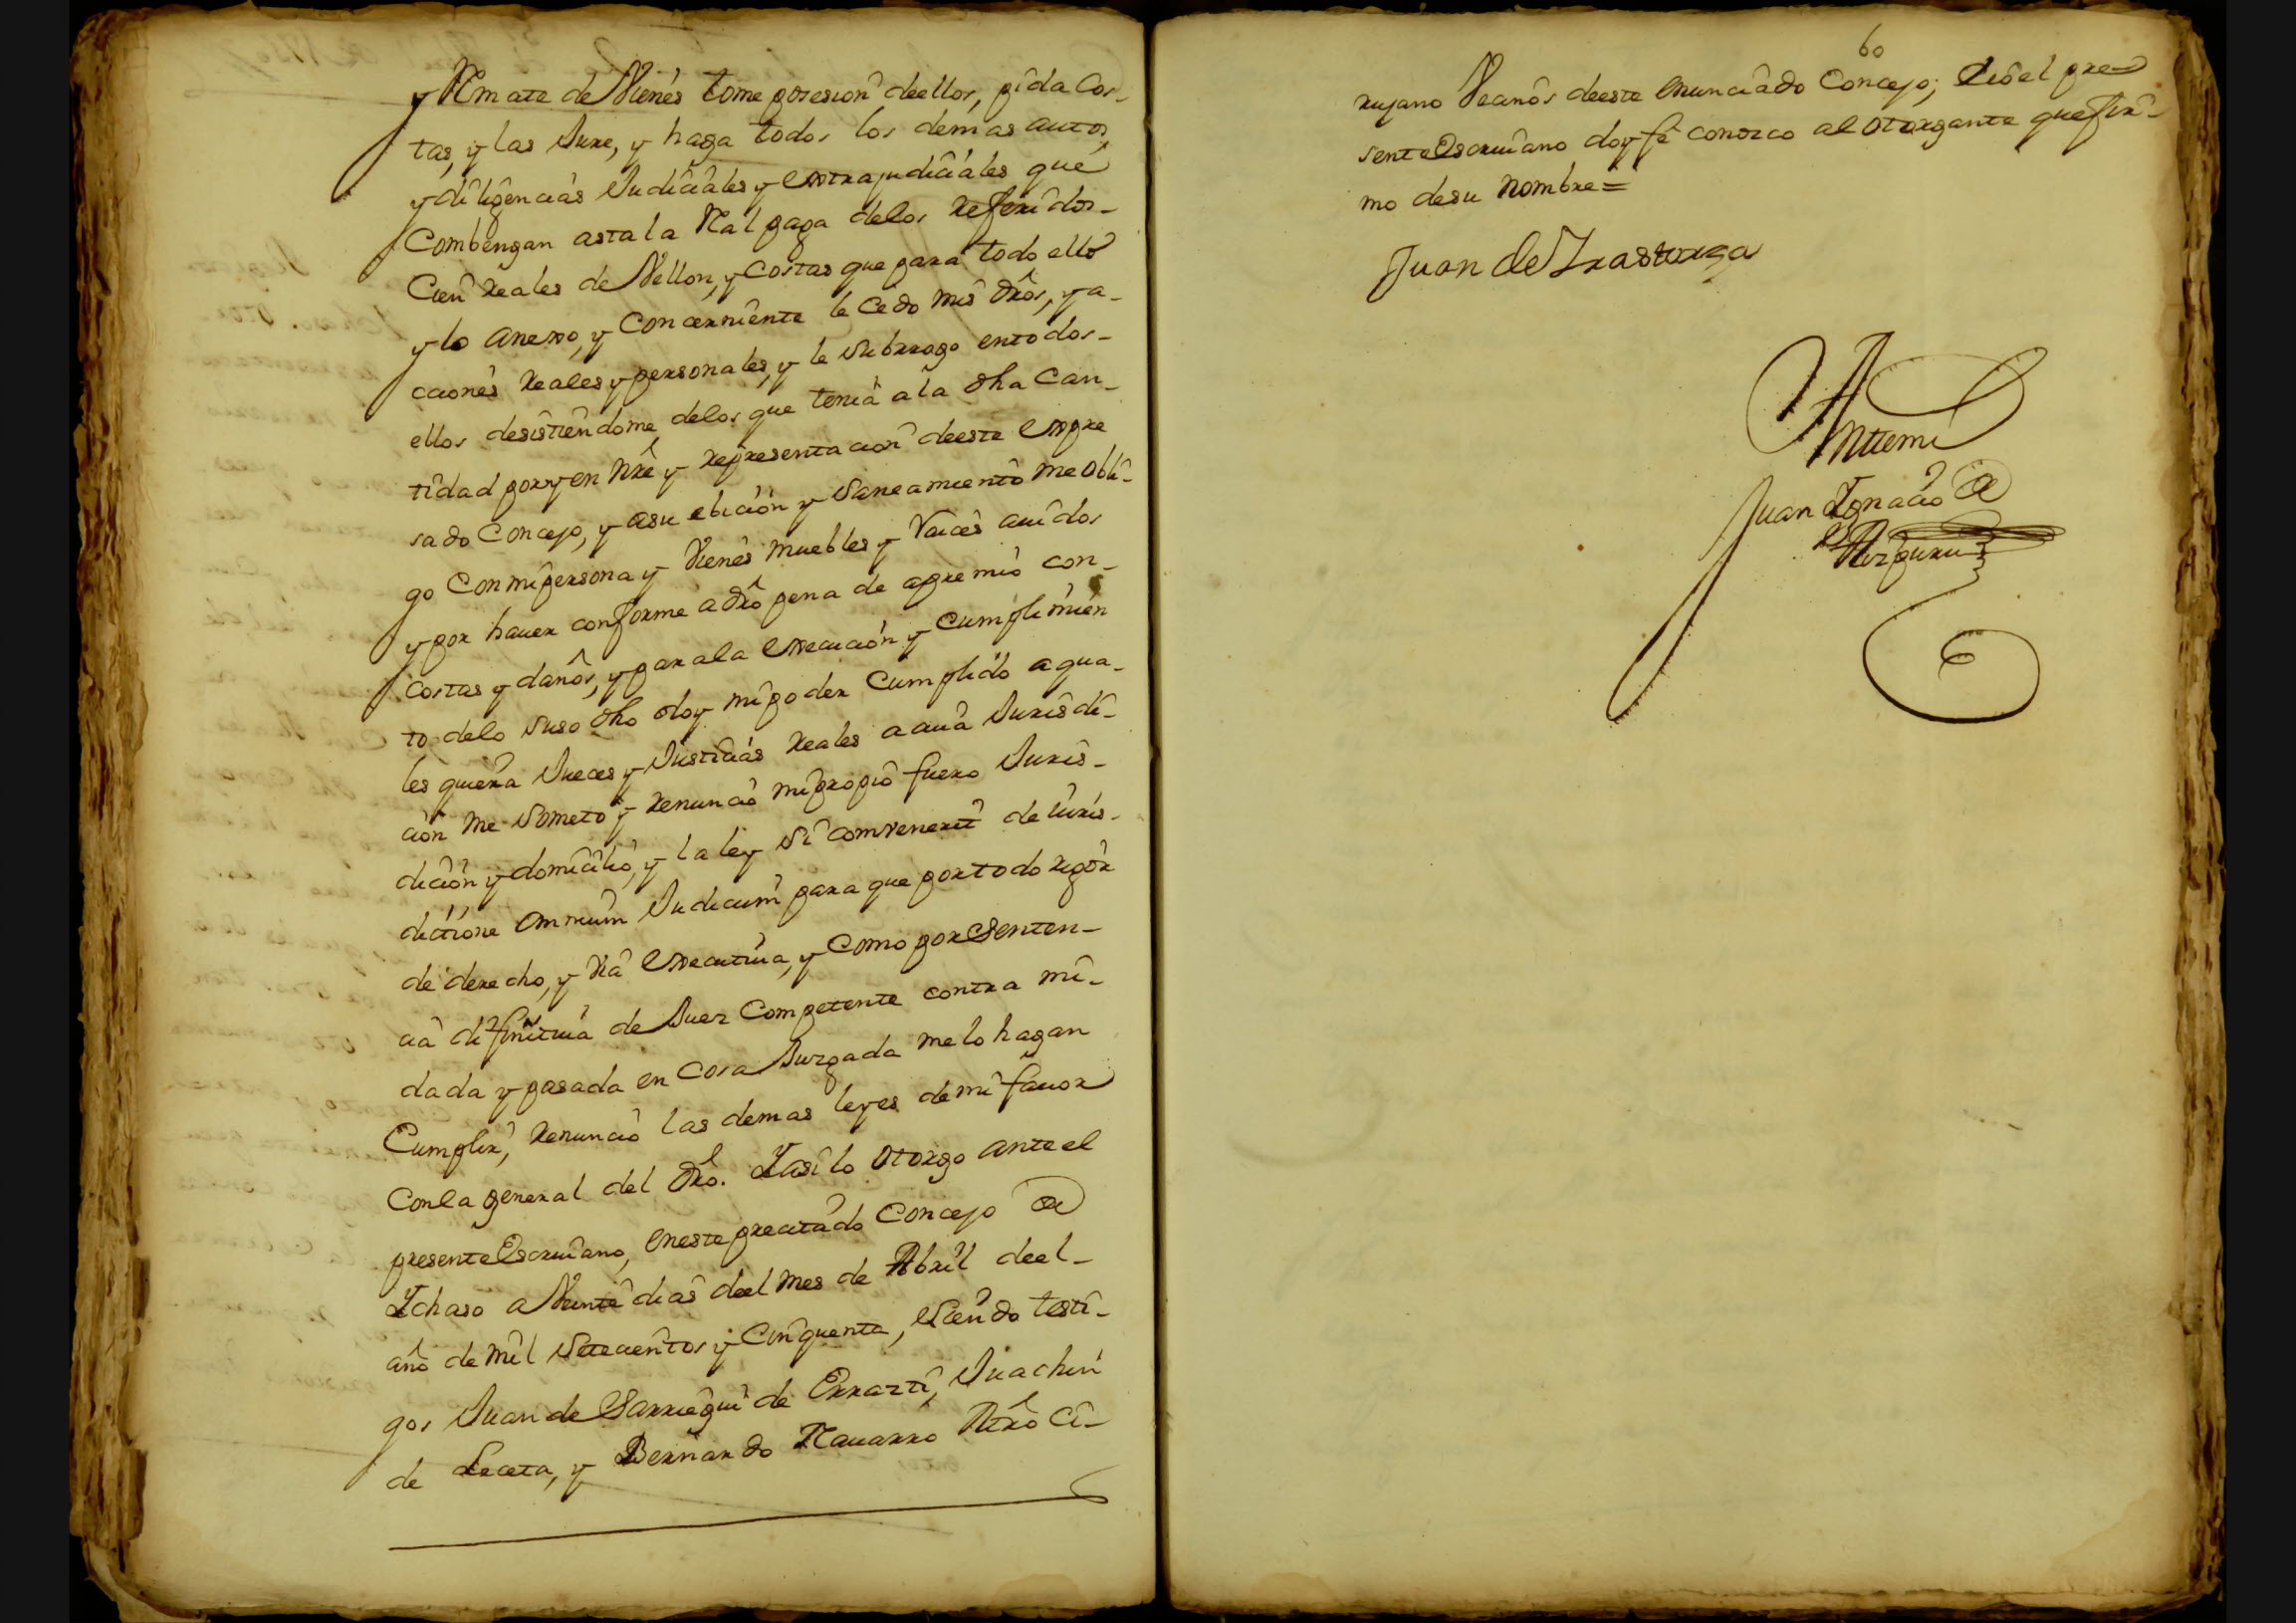 y Remate de Vienes tome posesion deellos, pida Cos-
tas, y las Jure, y haga todos los demas autos
y diligencias Judiciales y extrajudiciales que
Combengan asta la Real paga delos referidos
Cien reales de Vellon, y Costas que para todo ello
y lo anexo, y Concerniente le Cedo mis dros, y a-
cciones reales y personales, y le Subrrogo entodos-
ellos desistiendome delos que tenia ala dha Can-
tidad por y en nre y representacion deeste expre
sado Concejo, y asu ebicion y Saneamiento me obli-
go Con mi persona y Vienes muebles y Raices auidos
y por hauer conforme a dro pena de apremio con-
costas y daños, y para la execucion y Cumplimien
to delo suso dho doy mi poder Cumplido a qua-
les quiera Jueces y Justicias reales a cuia Jurisdi-
cion me Someto y renuncio mi propio fuero Juris-
dicion y domicilio, y la ley Si comvenerit de iuris-
dictione omnium Judicum para que por todo rigor
de derecho, y via executiva, y Como por Senten-
cia difinitiua de Juez Competente contra mi-
dada y pasada en Cosa Juzgada me lo hagan
Cumplir, renuncio las demas leyes de mi fauor
Con la general del dro. Y asi lo otorgo ante el
presente Escriuano, en este precitado Concejo de
Ychaso a Veinte dias deel mes de Abril deel-
año de mil Setecientos y Cinquenta, Siendo testi-
gos Juan de Sarriegui de Errazti, Juachin
de Leceta, y Bernardo Nauarro Mro Ci-
60
rujano Vecinos deeste enunciado Concejo; E io el pre-
sente Escriuano doy fe conozco al otorgante que fir-
mo de su nombre=
Juan de Irastorza
Anttemi
Juan Ignacio de
Aizpuru